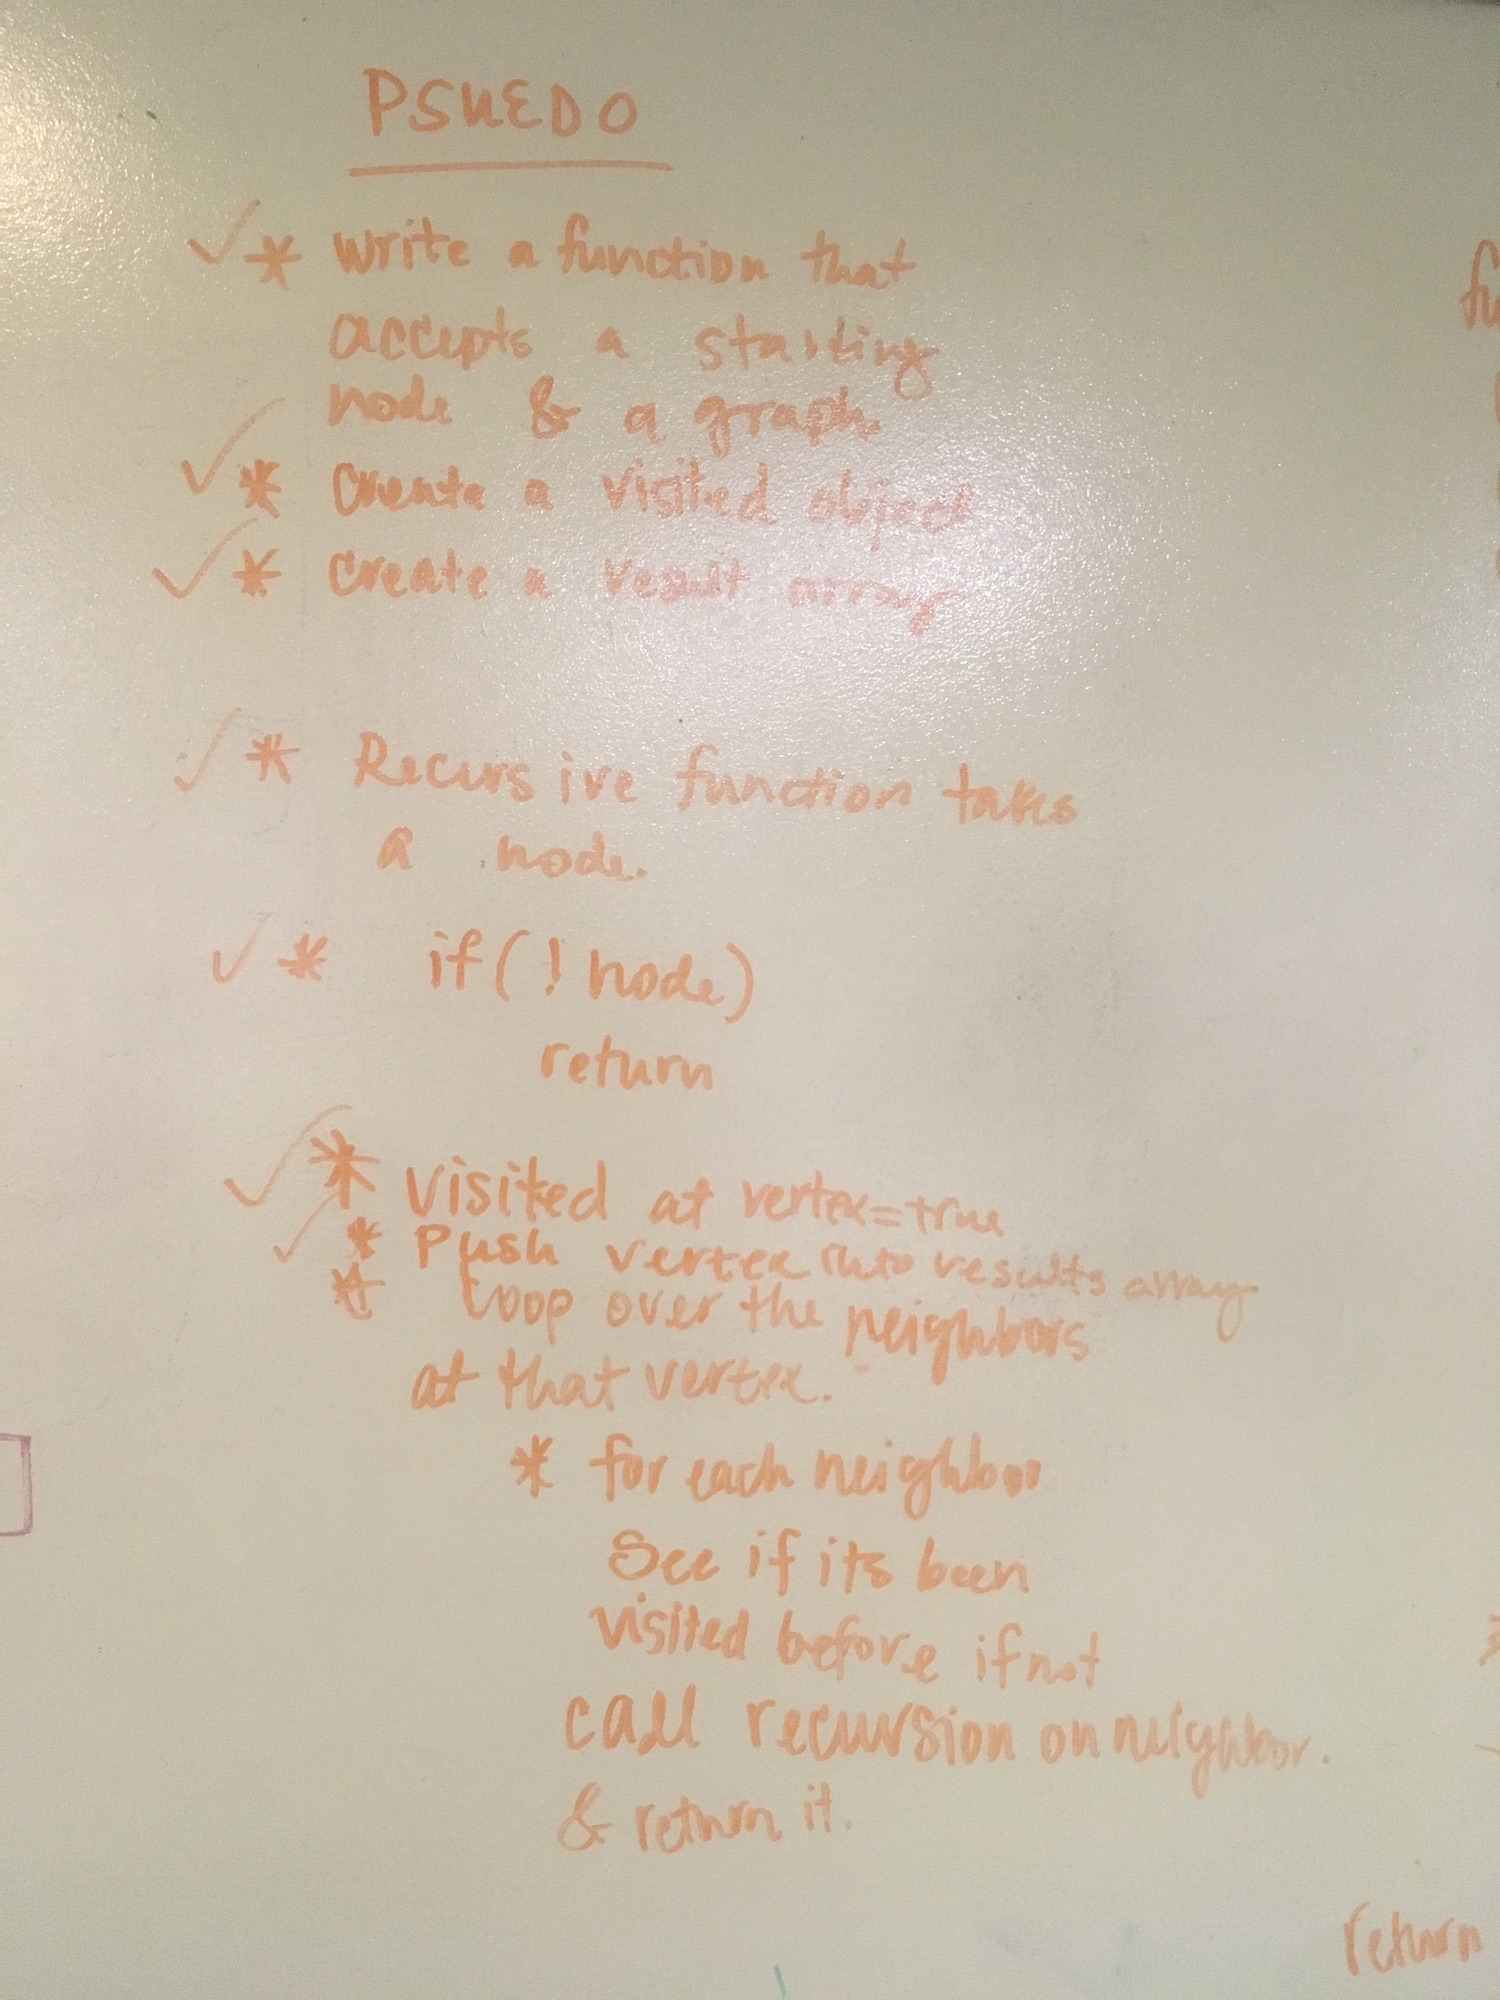 PSUEDO
✓ * write a function that
accepts a starting
node & a graph.
✓ * Create a visited object
✓ * Create a result array
✓ * Recursive function takes
a node.
✓ * if(!node)
return
✓ * visited at vertex=true
✓ * Push vertex into results array
* Loop over the neighbors
at that vertex.
* for each neighbor
See if its been
visited before if not
call recursion on neighbor.
& return it.
return